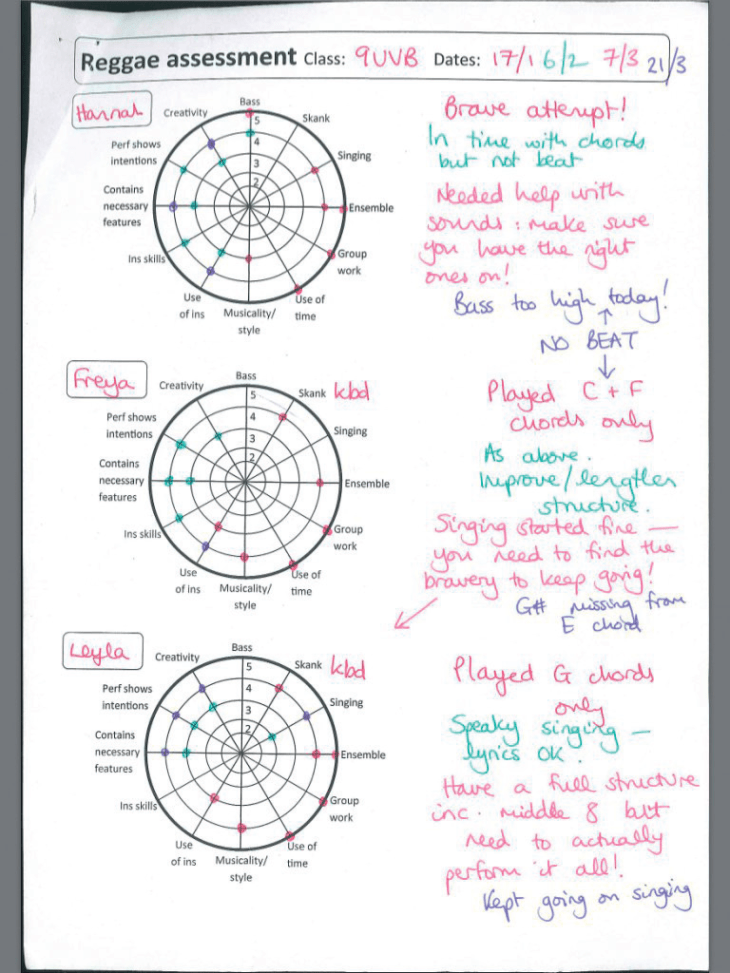 Reggae assessment Class: 9UVB Dates: 17/1 6/2 7/3 21/3
Hannah
Bass
Creativity
Skank
Perf shows
intentions
Singing
5
4
3
2
Contains
necessary
features
Ensemble
Ins skills
Group
work
Use
of ins
Musicality/
style
Use of
time
Brave attempt!
In time with chords
but not beat
Needed help with
sounds: make sure
you have the right
ones on!
Bass too high today!
NO BEAT
Freya
Bass
Creativity
Skank kbd
Perf shows
intentions
Singing
5
4
3
2
Contains
necessary
features
Ensemble
Ins skills
Group
work
Use
of ins
Musicality/
style
Use of
time
Played C + F
chords only
As above.
Improve/lengthen
structure.
Singing started fine —
you need to find the
bravery to keep going!
G# missing from
E chord
Leyla
Bass
Creativity
Skank kbd
Perf shows
intentions
Singing
5
4
3
2
Contains
necessary
features
Ensemble
Ins skills
Group
work
Use
of ins
Musicality/
style
Use of
time
Played G chords
only
Speaky singing —
lyrics OK.
Have a full structure
inc. middle 8 but
need to actually
perform it all!
Kept going on singing